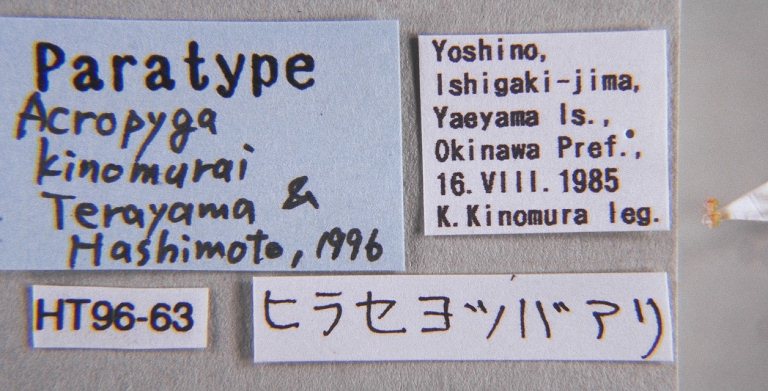 Paratype
Acropyga
kinomurai
Terayama &
Hashimoto, 1996
Yoshino,
Ishigaki-jima,
Yaeyama Is.,
Okinawa Pref.,
16.VIII.1985
K.Kinomura leg.
HT96-63
ヒラセヨツバアリ